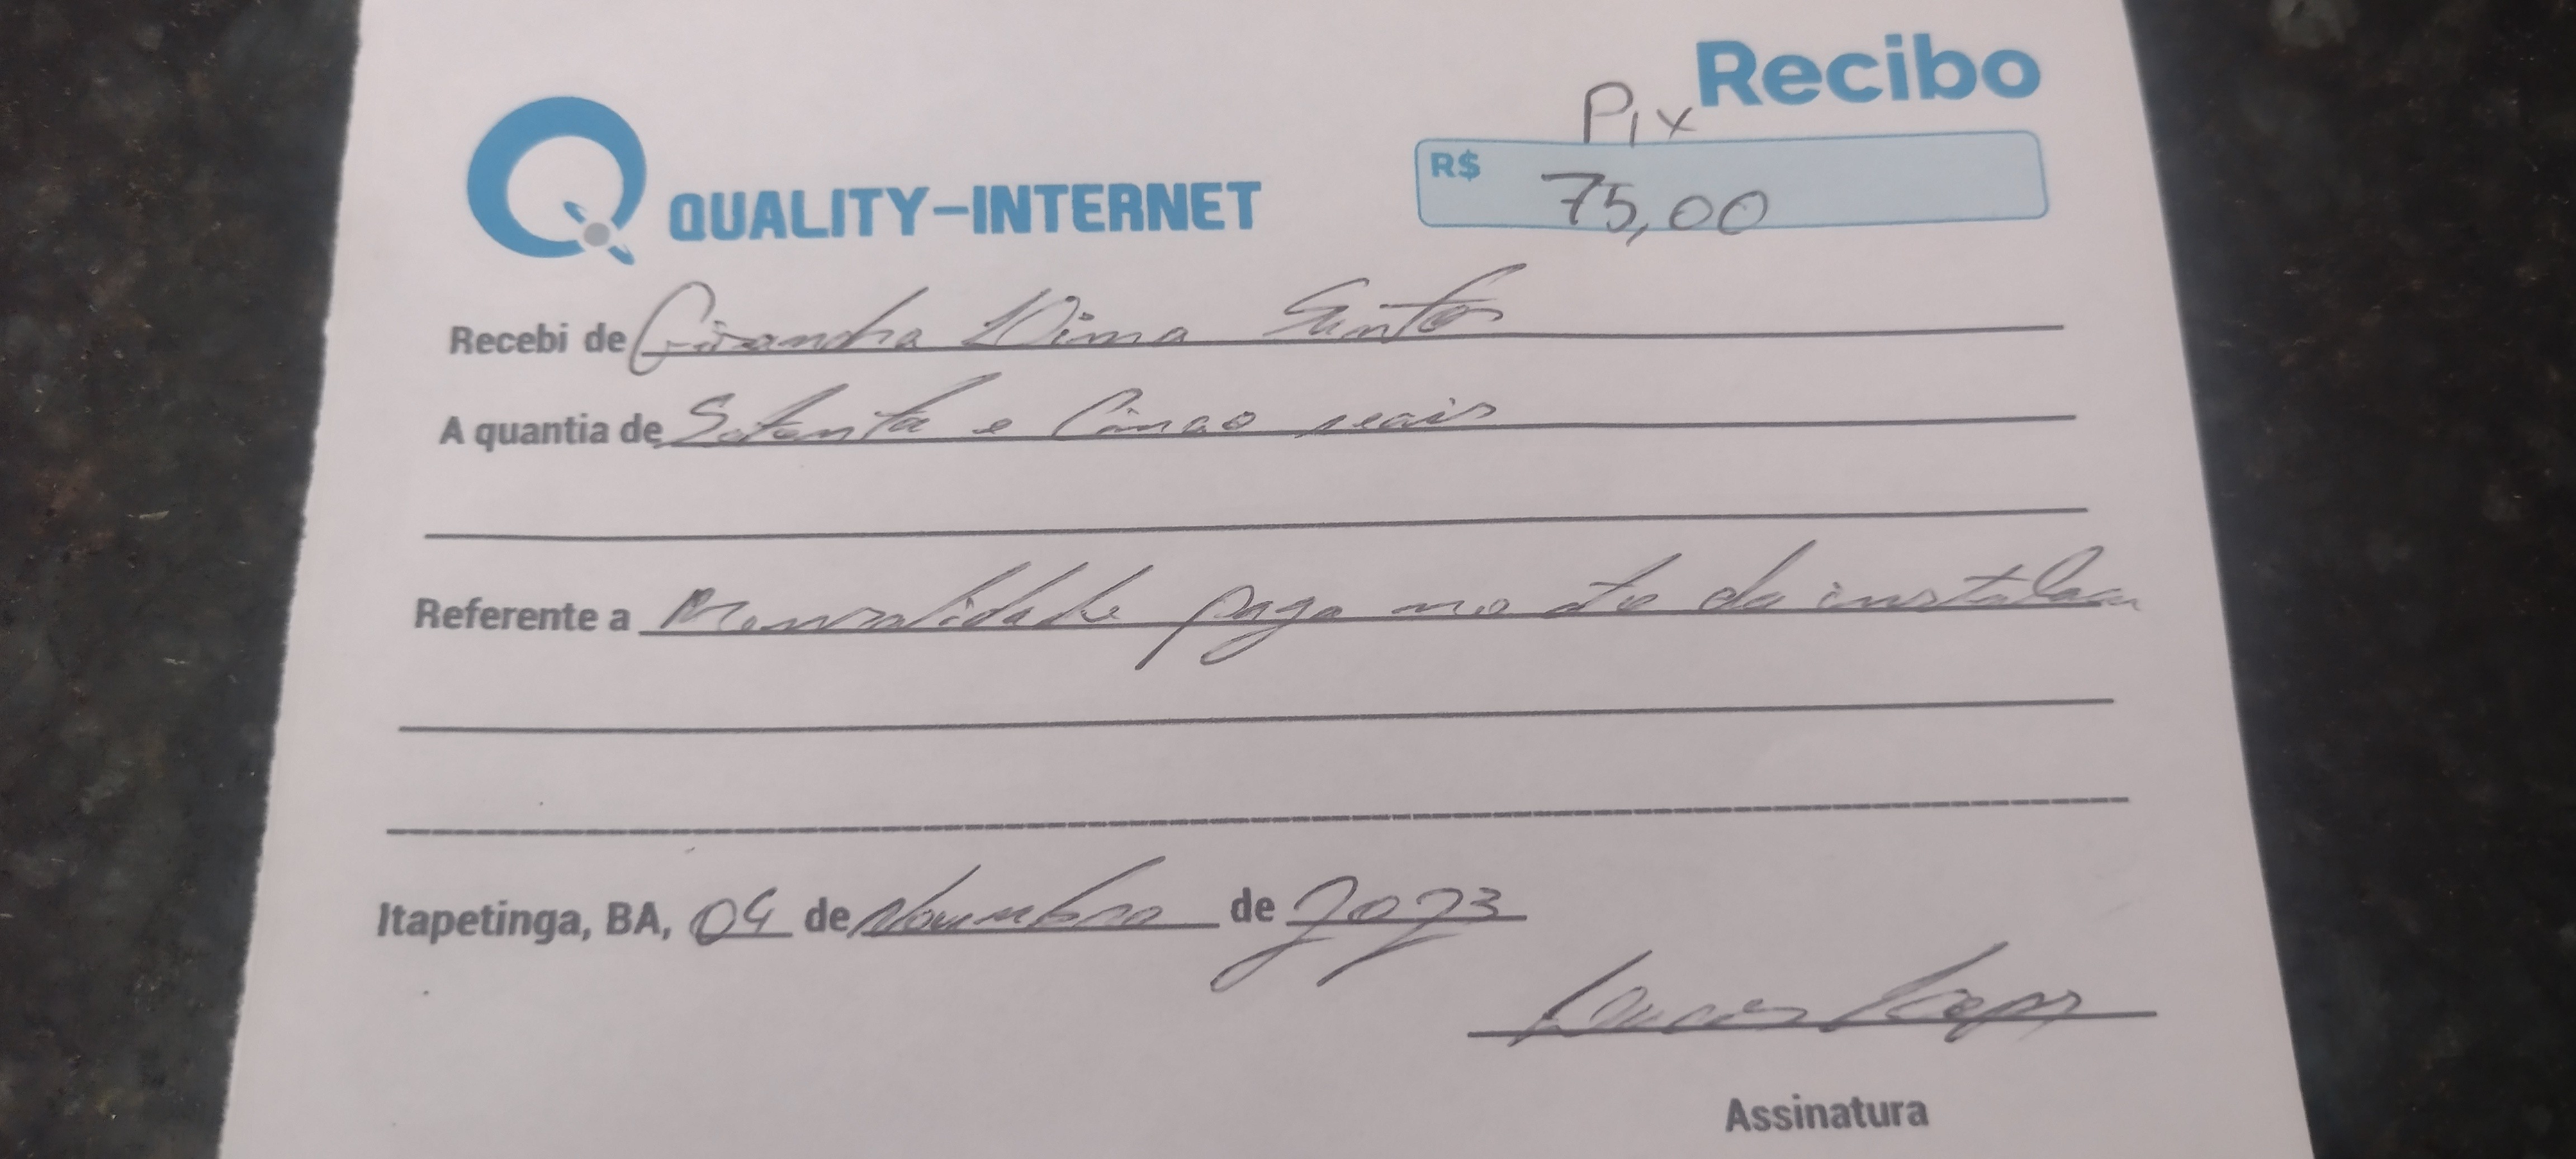 Recibo
Pix
QUALITY-INTERNET
R$ 75,00
Recebi de Santos
A quantia de Setenta e Cinco reais
Referente a Mensalidade paga no ato da instalacao
Itapetinga, BA, 04 de Novembro de 2023
Assinatura